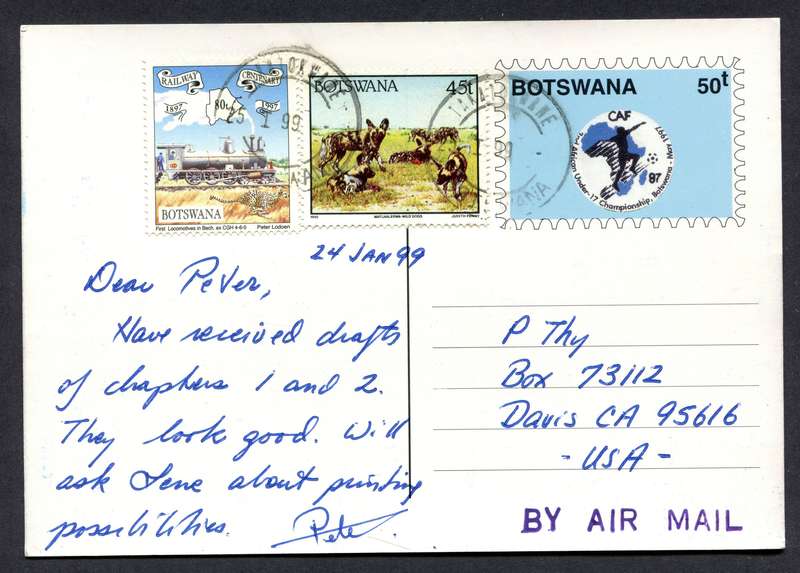 RAILWAY CENTENARY
1897 1997
80t
BOTSWANA
First Locomotives in Bech, ex CGR 4-6-0 Peter Lodoen
BOTSWANA 45t
MATLHALERWA-WILD DOGS
25 I 99
BOTSWANA 50t
CAF
2nd African Under-17 Championship, Botswana - May 1997
97
24 JAN 99
Dear Peter,
Have received drafts
of chapters 1 and 2.
They look good. Will
ask Lene about printing
possibilities. Peter.
P Thy
Box 73112
Davis CA 95616
- USA -
BY AIR MAIL